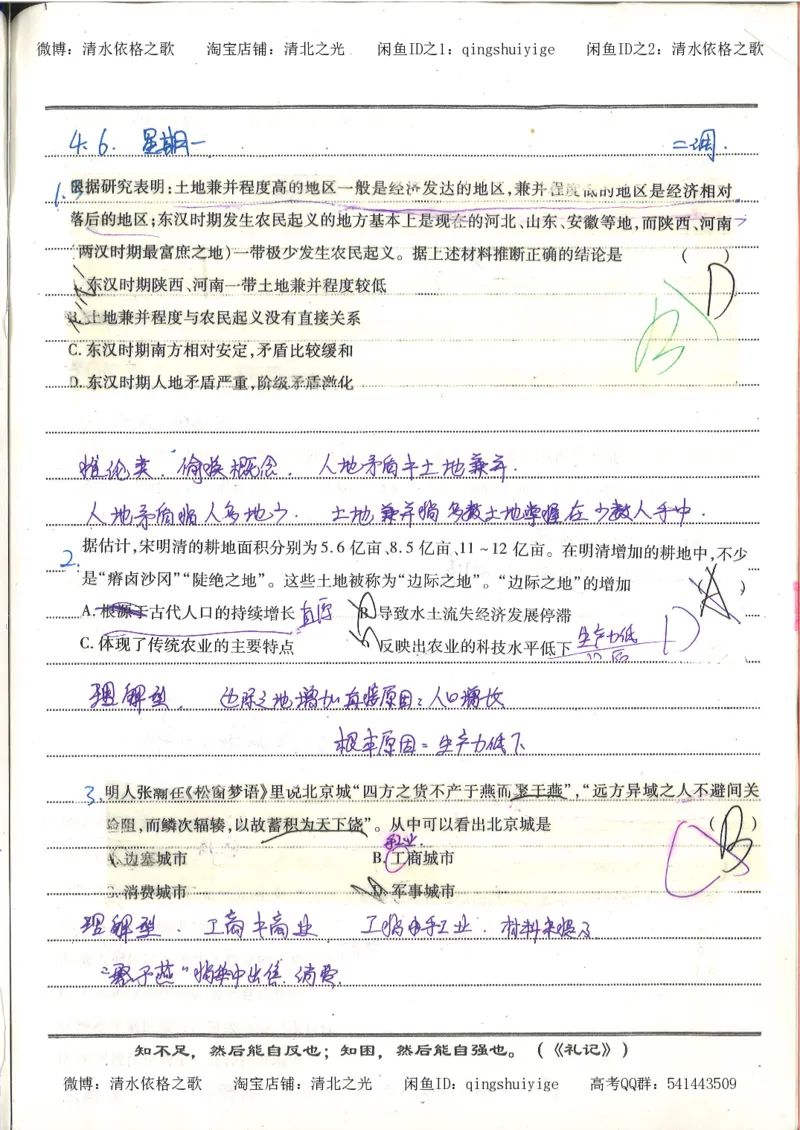 微博：清水依格之歌 淘宝店铺：清北之光 闲鱼ID之1：qingshuiyige 闲鱼ID之2：清水依格之歌
4.6. 星期一 二调.
1. 根据研究表明:土地兼并程度高的地区一般是经济发达的地区,兼并程度低的地区是经济相对
落后的地区;东汉时期发生农民起义的地方基本上是现在的河北、山东、安徽等地,而陕西、河南
(两汉时期最富庶之地)一带极少发生农民起义。据上述材料推断正确的结论是 ( D )
A.东汉时期陕西、河南一带土地兼并程度较低
B.土地兼并程度与农民起义没有直接关系
B
C.东汉时期南方相对安定,矛盾比较缓和
D.东汉时期人地矛盾严重,阶级矛盾激化
推论类. 偷换概念. 人地矛盾≠土地兼并.
人地矛盾指人多地少. 土地兼并指多数土地掌握在少数人手中.
2. 据估计,宋明清的耕地面积分别为5.6亿亩、8.5亿亩、11~12亿亩。在明清增加的耕地中,不少
是“瘠卤沙冈”“陡绝之地”。这些土地被称为“边际之地”。“边际之地”的增加 ( A )
A.根源于古代人口的持续增长 直原 B.导致水土流失经济发展停滞
C.体现了传统农业的主要特点 D.反映出农业的科技水平低下 生产力低 D
理解型. 边际之地增加直接原因：人口膨胀
根本原因=生产力低下
3. 明人张瀚在《松窗梦语》里说北京城“四方之货不产于燕而聚于燕”,“远方异域之人不避间关
险阻,而鳞次辐辏,以故蓄积为天下饶”。从中可以看出北京城是 ( B )
手工业.
A.边塞城市 B.工商城市 C
C.消费城市 D.军事城市
理解型. 工商≠商业 工指手工业. 材料未提及
“聚于燕”指集中出售.消费.
知不足，然后能自反也；知困，然后能自强也。（《礼记》）
微博：清水依格之歌 淘宝店铺：清北之光 闲鱼ID：qingshuiyige 高考QQ群：541443509